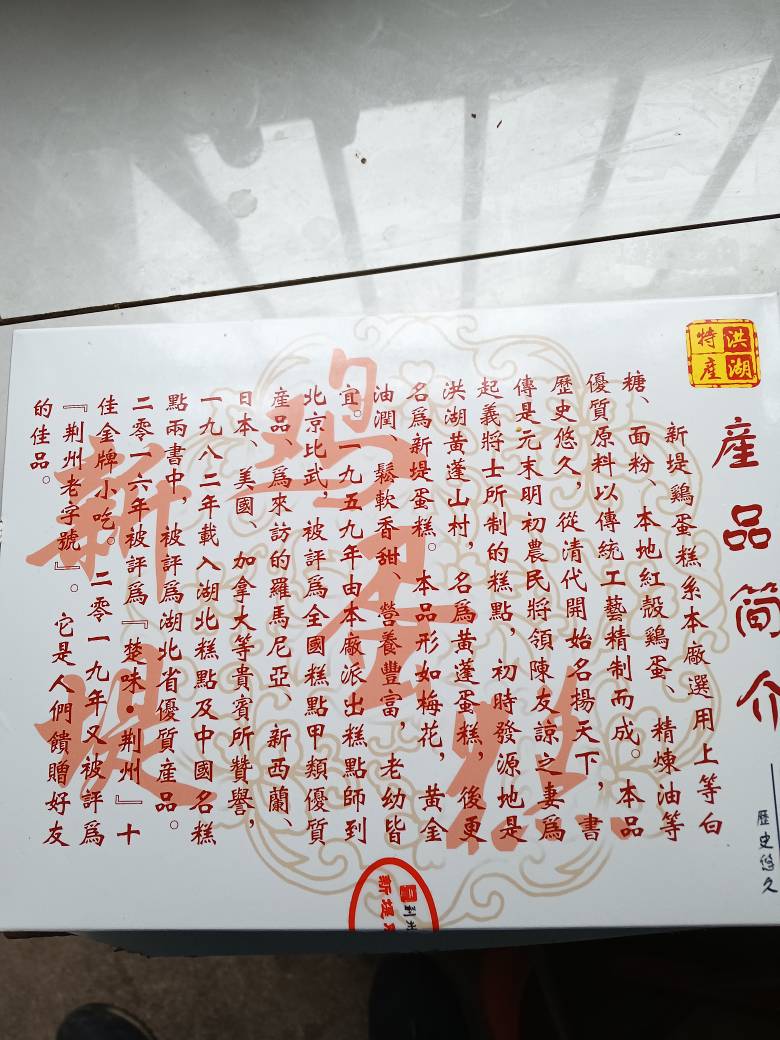 洪湖
特産
産品简介
歷史悠久
新堤鷄蛋糕系本廠選用上等白
糖、面粉、本地紅殼鷄蛋、精煉油等
優質原料以傳統工藝精制而成。本品
歷史悠久，從清代開始名揚天下，書
傳是元末明初農民將領陳友諒之妻爲
起義將士所制的糕點，初時發源地是
洪湖黄蓬山村，名爲黄蓬蛋糕，後更
名爲新堤蛋糕。本品形如梅花，黄金
油潤、鬆軟香甜、營養豐富，老幼皆
宜。一九五九年由本廠派出糕點師到
北京比武，被評爲全國糕點甲類優質
産品、爲來訪的羅馬尼亞、新西蘭、
日本、美國、加拿大等貴賓所贊譽，
一九八二年載入湖北糕點及中國名糕
點兩書中，被評爲湖北省優質産品。
二零一六年被評爲『楚味·荆州』十
佳金牌小吃。二零一九年又被評爲
『荆州老字號』。它是人們饋贈好友
的佳品。
新堤
鸡蛋糕
新堤